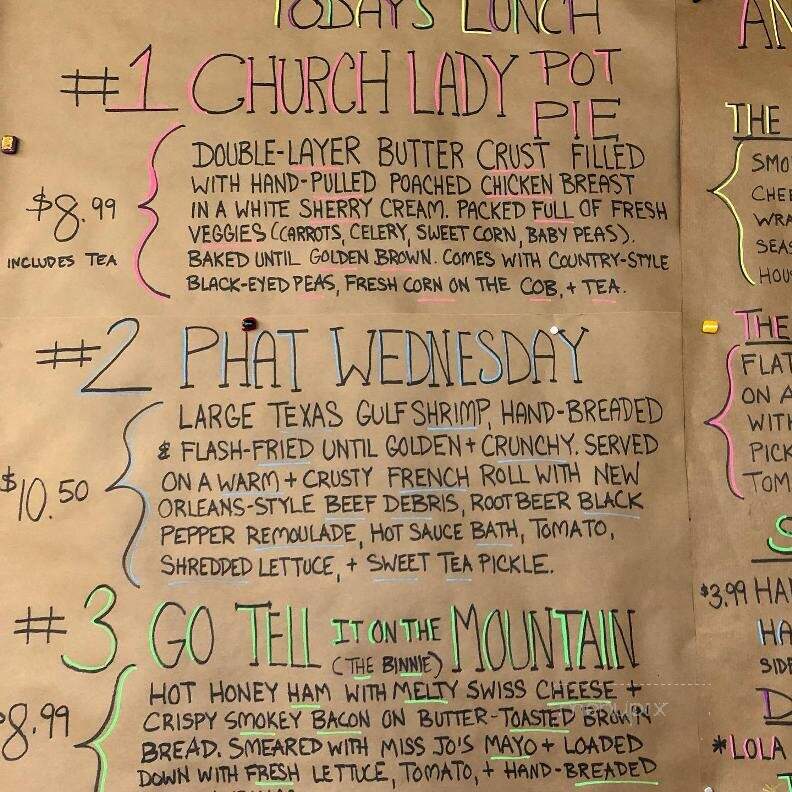 TODAY'S LUNCH
#1 CHURCH LADY POT PIE
DOUBLE-LAYER BUTTER CRUST FILLED
WITH HAND-PULLED POACHED CHICKEN BREAST
$8.99
IN A WHITE SHERRY CREAM. PACKED FULL OF FRESH
VEGGIES (CARROTS, CELERY, SWEET CORN, BABY PEAS).
INCLUDES TEA
BAKED UNTIL GOLDEN BROWN. COMES WITH COUNTRY-STYLE
BLACK-EYED PEAS, FRESH CORN ON THE COB, + TEA.
#2 PHAT WEDNESDAY
LARGE TEXAS GULF SHRIMP, HAND-BREADED
& FLASH-FRIED UNTIL GOLDEN + CRUNCHY. SERVED
ON A WARM + CRUSTY FRENCH ROLL WITH NEW
$10.50
ORLEANS-STYLE BEEF DEBRIS, ROOT BEER BLACK
PEPPER REMOULADE, HOT SAUCE BATH, TOMATO,
SHREDDED LETTUCE, + SWEET TEA PICKLE.
#3 GO TELL IT ON THE MOUNTAIN
(THE BINNIE)
HOT HONEY HAM WITH MELTY SWISS CHEESE +
8.99
CRISPY SMOKEY BACON ON BUTTER-TOASTED BROWN
BREAD. SMEARED WITH MISS JO'S MAYO + LOADED
DOWN WITH FRESH LETTUCE, TOMATO, + HAND-BREADED
AN
THE
SMO
CHEE
WRA
SEAS
HOUS
THE
FLAT
ON A
WITH
PICK
TOM
S
$3.99 HA
HA
SIDE
D
*LOLA